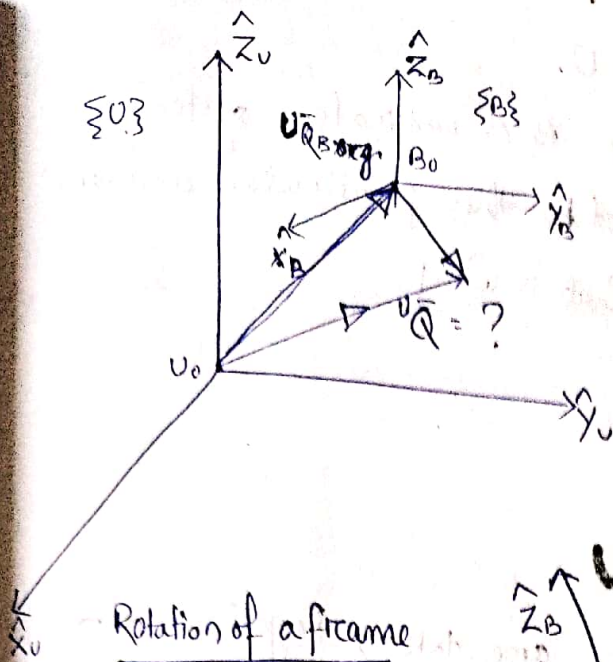 Ẑ_U
{U}
Ẑ_B
{B}
U Q̄_B org.
B₀
Ŷ_B
X̂_B
ᵁQ̄ = ?
U₀
Ŷ_U
X̂_U
Rotation of a frame
Ẑ_B